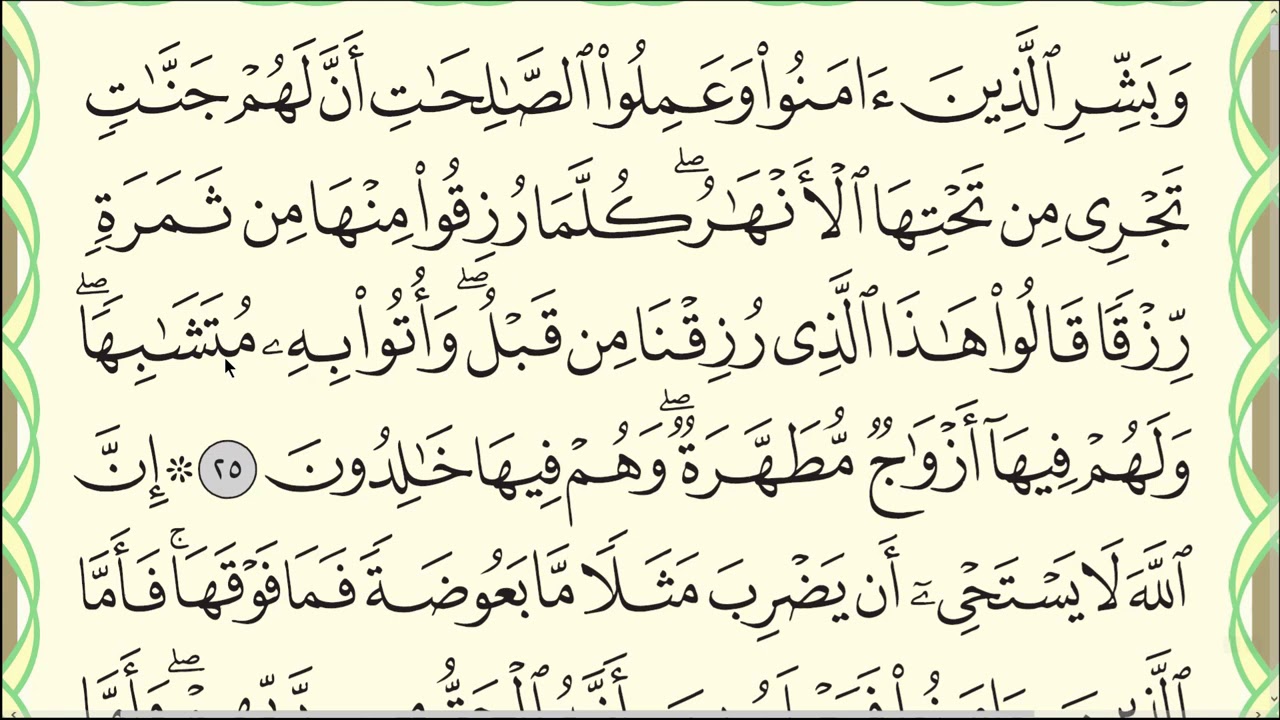 وَبَشِّرِ ٱلَّذِينَ ءَامَنُوا۟ وَعَمِلُوا۟ ٱلصَّـٰلِحَـٰتِ أَنَّ لَهُمْ جَنَّـٰتٍ
تَجْرِى مِن تَحْتِهَا ٱلْأَنْهَـٰرُ ۖ كُلَّمَا رُزِقُوا۟ مِنْهَا مِن ثَمَرَةٍ
رِّزْقًا قَالُوا۟ هَـٰذَا ٱلَّذِى رُزِقْنَا مِن قَبْلُ ۖ وَأُتُوا۟ بِهِۦ مُتَشَـٰبِهًا ۖ
وَلَهُمْ فِيهَآ أَزْوَٰجٌ مُّطَهَّرَةٌ ۖ وَهُمْ فِيهَا خَـٰلِدُونَ ٢٥ ۞ إِنَّ
ٱللَّهَ لَا يَسْتَحْىِۦٓ أَن يَضْرِبَ مَثَلًا مَّا بَعُوضَةً فَمَا فَوْقَهَا ۚ فَأَمَّا